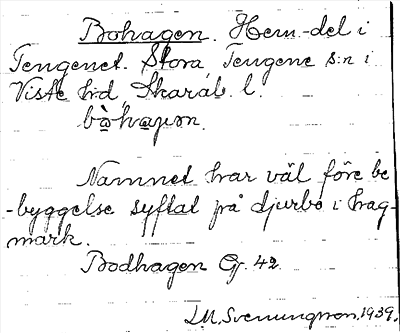 Bohagen. Hem.-del i
Tengenet. Stora Tengene s:n i
Viste hd, Skarab. l.
Namnet har väl före be
-byggelse syftat på djurbo i hag-
mark.
Bodhagen Gj. 42
I.M. Svenungsson, 1939.